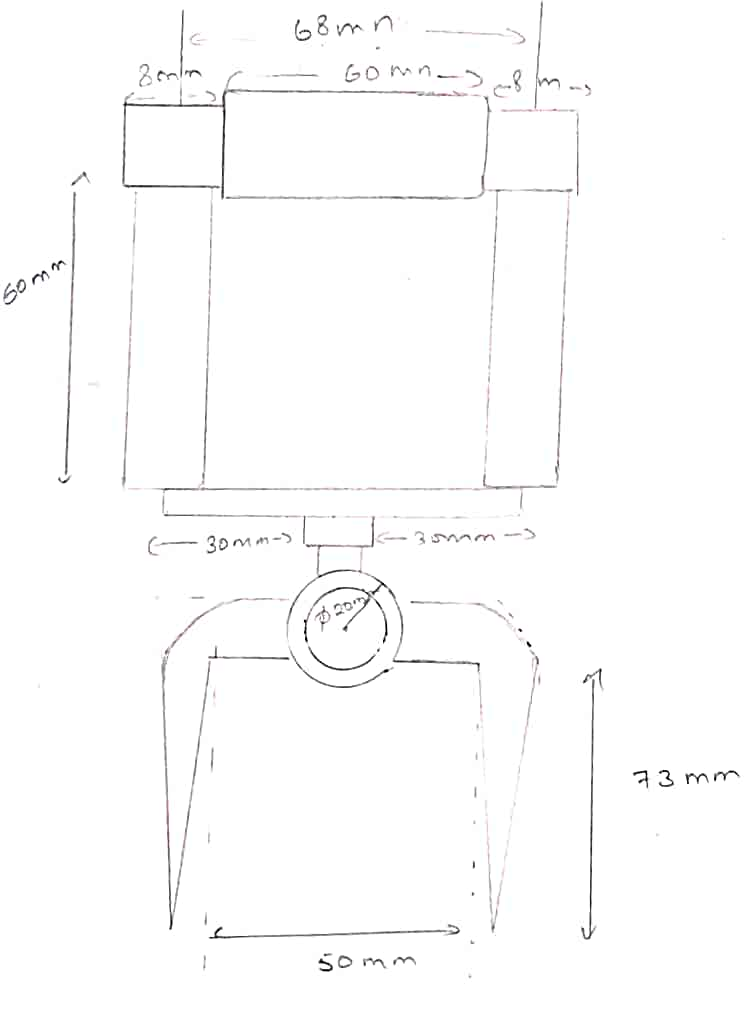 68mm
8mm
60mm
8 m
60mm
30mm
30mm
Φ20m
73mm
50mm